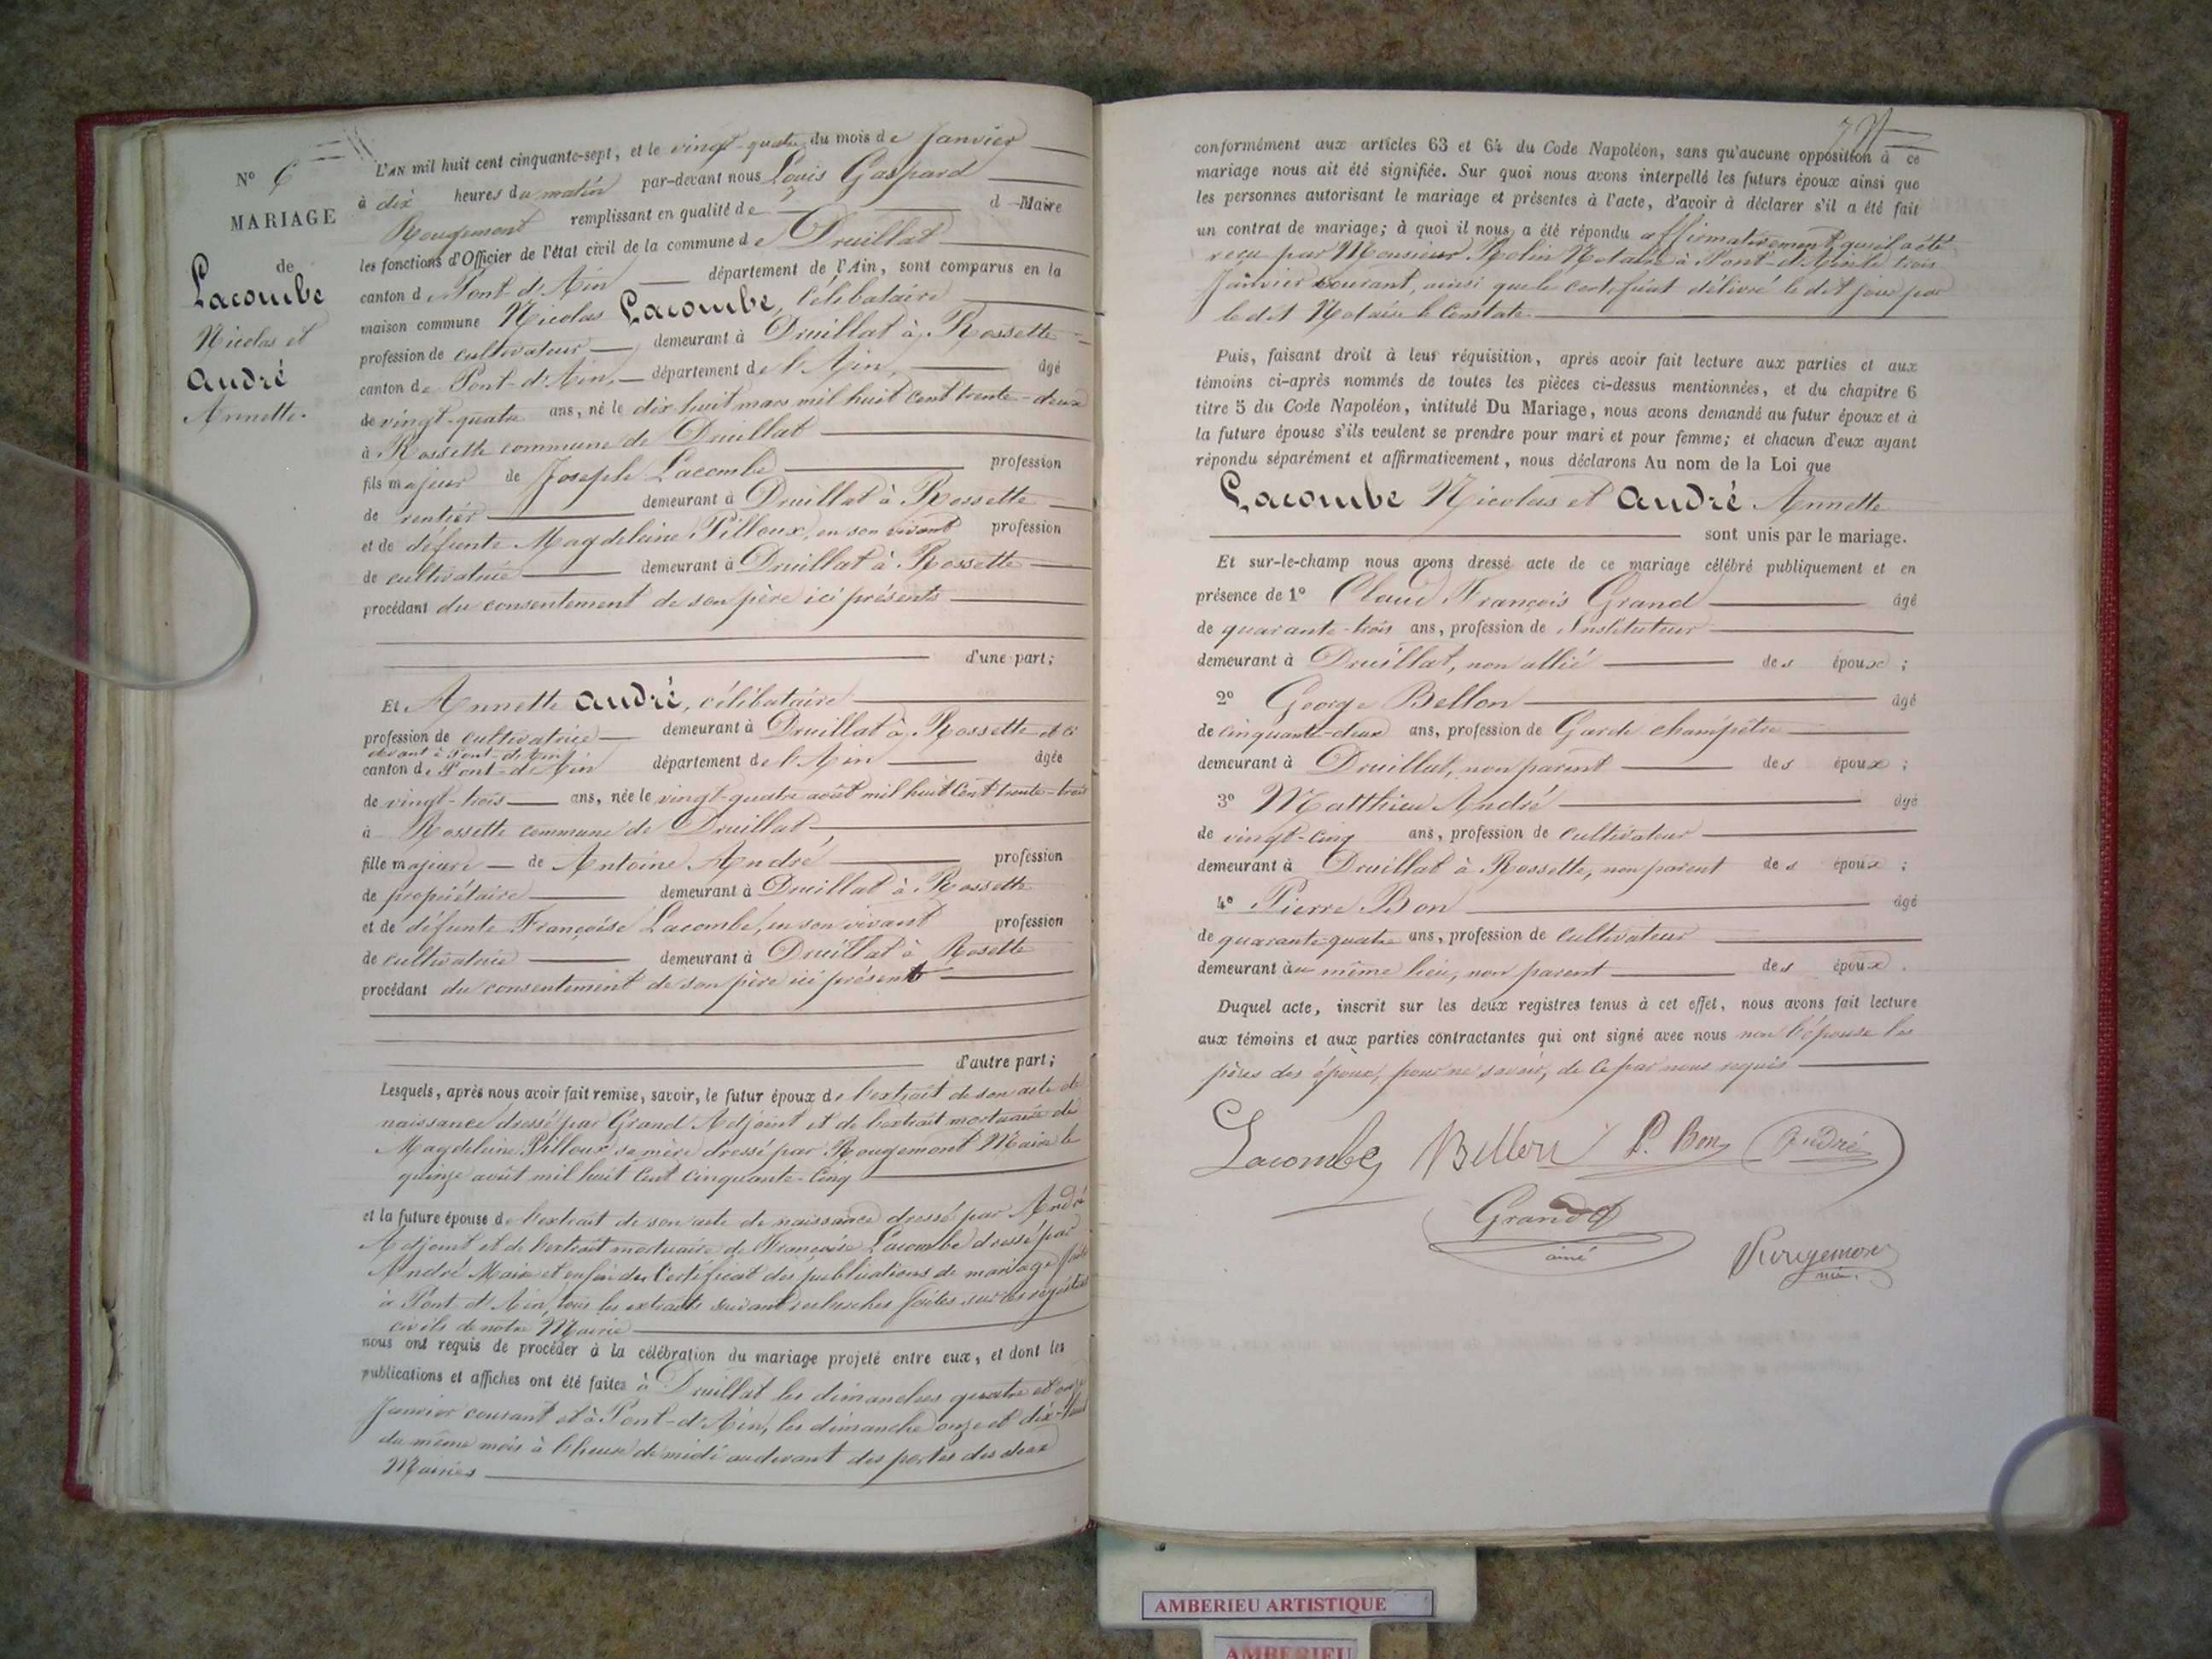 N° 6
MARIAGE
de
Lacombe
Nicolas et
André
Annette.
L'AN mil huit cent cinquante-sept, et le vingt-quatre du mois de Janvier
à dix heures du matin par-devant nous Louis Gaspard
Rougemont remplissant en qualité de d Maire
les fonctions d'Officier de l'état civil de la commune de Druillat
canton de Pont-d'Ain département de l'Ain, sont comparus en la
maison commune Nicolas Lacombe, célibataire
profession de cultivateur demeurant à Druillat à Rossette
canton de Pont-d'Ain, département de l'Ain, âgé
de vingt-quatre ans, né le dix huit mars mil huit cent trente-deux
à Rossette commune de Druillat
fils majeur de Joseph Lacombe profession
de rentier demeurant à Druillat à Rossette
et de défunte Magdeleine Pilloux, en son vivant profession
de cultivatrice demeurant à Druillat à Rossette
procédant du consentement de son père ici présents
d'une part;
Et Annette André, célibataire
profession de cultivatrice demeurant à Druillat à Rossette et ci
devant à Pont-d'Ain
canton de Pont-d'Ain département de l'Ain âgée
de vingt-trois ans, née le vingt-quatre août mil huit cent trente-trois
à Rossette commune de Druillat,
fille majeure de Antoine André profession
de propriétaire demeurant à Druillat à Rossette
et de défunte Françoise Lacombe, en son vivant profession
de cultivatrice demeurant à Druillat à Rosette
procédant du consentement de son père ici présent
d'autre part;
Lesquels, après nous avoir fait remise, savoir, le futur époux de l'extrait de son acte de
naissance dressé par Grand Adjoint et de l'extrait mortuaire de
Magdeleine Pilloux sa mère dressé par Rougemont Maire le
quinze août mil huit cent cinquante-cinq
et la future épouse de l'extrait de son acte de naissance dressé par André
Adjoint et de l'extrait mortuaire de Françoise Lacombe dressé par
André Maire et enfin du Certificat des publications de mariage
à Pont d'Ain, tous les extraits suivant recherches faites sur les registres
civils de notre Mairie
nous ont requis de procéder à la célébration du mariage projeté entre eux, et dont les
publications et affiches ont été faites à Druillat les dimanches quatre et onze
Janvier courant et à Pont-d'Ain, les dimanche onze et dix-huit
du même mois à l'heure de midi au devant des portes des deux
Mairies
conformément aux articles 63 et 64 du Code Napoléon, sans qu'aucune opposition à ce
mariage nous ait été signifiée. Sur quoi nous avons interpellé les futurs époux ainsi que
les personnes autorisant le mariage et présentes à l'acte, d'avoir à déclarer s'il a été fait
un contrat de mariage; à quoi il nous a été répondu affirmativement, qu'il a été
reçu par Monsieur Rolin Notaire à Pont-d'Ain le trois
Janvier courant, ainsi que le certificat délivré le dit jour par
le dit Notaire le Constate.
Puis, faisant droit à leur réquisition, après avoir fait lecture aux parties et aux
témoins ci-après nommés de toutes les pièces ci-dessus mentionnées, et du chapitre 6
titre 5 du Code Napoléon, intitulé Du Mariage, nous avons demandé au futur époux et à
la future épouse s'ils veulent se prendre pour mari et pour femme; et chacun d'eux ayant
répondu séparément et affirmativement, nous déclarons Au nom de la Loi que
Lacombe Nicolas et André Annette
sont unis par le mariage.
Et sur-le-champ nous avons dressé acte de ce mariage célébré publiquement et en
présence de 1° Claud François Grand âgé
de quarante-trois ans, profession de Instituteur
demeurant à Druillat, non allié des époux;
2° George Bellon âgé
de cinquante-deux ans, profession de Garde champêtre
demeurant à Druillat, non parent des époux;
3° Matthieu André âgé
de vingt-cinq ans, profession de cultivateur
demeurant à Druillat à Rossette, non parent des époux;
4° Pierre Bon âgé
de quarante-quatre ans, profession de cultivateur
demeurant au même lieu, non parent des époux.
Duquel acte, inscrit sur les deux registres tenus à cet effet, nous avons fait lecture
aux témoins et aux parties contractantes qui ont signé avec nous non l'épouse les
pères des époux, pour ne savoir, de ce par nous requis
Lacombe Bellon P. Bon André
Grand
ainé
Rougemont
AMBERIEU ARTISTIQUE
AMBERIEU